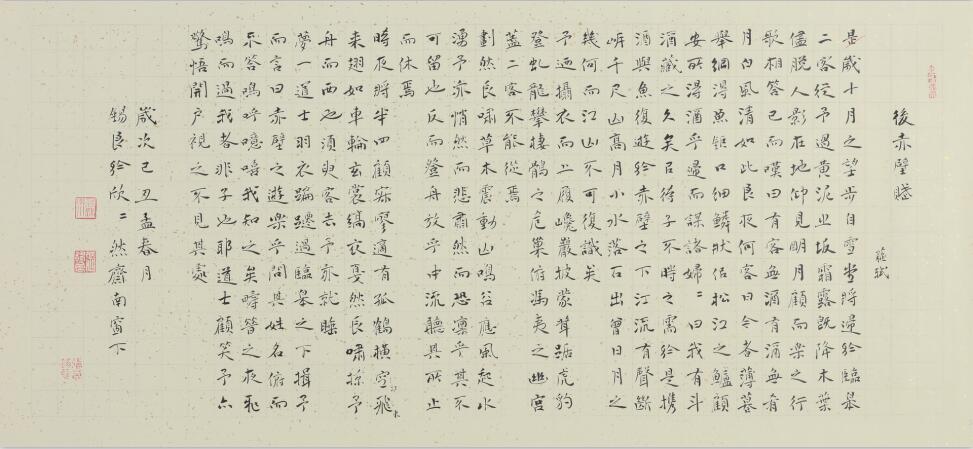 後赤壁賦
蘇軾
是歲十月之望步自雪堂將還於臨皋
二客從予過黃泥之坂霜露既降木葉
儘脫人影在地仰見明月顧而樂之行
歌相答已而嘆曰有客無酒有酒無肴
月白風清如此良夜何客曰今者薄暮
舉網得魚鉅口細鱗狀似松江之鱸顧
安所得酒乎還而謀諸婦二曰我有斗
酒藏之久矣以待子不時之需於是携
酒與魚復遊於赤壁之下江流有聲斷
岸千尺山高月小水落石出曾日月之
幾何而江山不可復識矣
予迺攝衣而上履巉巖披蒙茸踞虎豹
登虬龍攀棲鶻之危巢俯馮夷之幽宮
蓋二客不能從焉
劃然長嘯草木震動山鳴谷應風起水
湧予亦悄然而悲肅然而恐凜乎其不
可留也反而登舟放乎中流聽其所止
而休焉
時夜將半四顧寂寥適有孤鶴橫空飛
來翅如車輪玄裳縞衣戛然長嘯掠予
舟而西也須臾客去予亦就睡
夢一道士羽衣蹁躚過臨皋之下揖予
而言曰赤壁之遊樂乎問其姓名俯而
不答嗚呼噫嘻我知之矣疇昔之夜飛
鳴而過我者非子也耶道士顧笑予亦
驚悟開戶視之不見其處
歲次己丑孟春月
錫良於欣二然齋南窗下